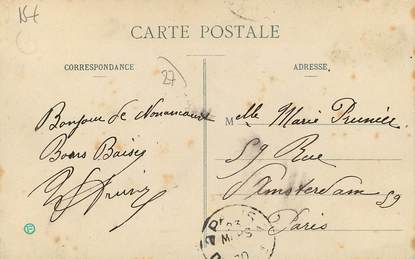 15t
CARTE POSTALE
CORRESPONDANCE
ADRESSE
27
Bonjour de Nonancourt
Bons Baises
Melle Marie Prunier
59 Rue
d'Amsterdam 59
Paris